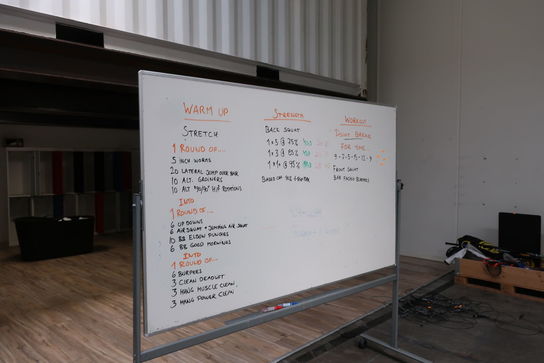 WARM UP
STRETCH
1 ROUND OF...
5 INCH WORMS
20 LATERAL JUMP OVER BAR
10 ALT. GROINERS
10 ALT 90/90° HIP ROTATIONS
INTO
1 ROUND OF...
6 UP DOWNS
6 AIR SQUAT + JUMPING AIR SQUAT
10 BB ELBOW PUNCHES
6 BB GOOD MORNINGS
INTO
1 ROUND OF...
6 BURPEES
3 CLEAN DEADLIFT
3 HANG MUSCLE CLEAN
3 HANG POWER CLEAN
STRENGTH
BACK SQUAT
1 × 5 @ 75%
1 × 3 @ 85%
1 × 1+ @ 95%
BASED OFF THE
WORKOUT
FOR TIME
FRONT SQUAT
BAR FACING BURPEES